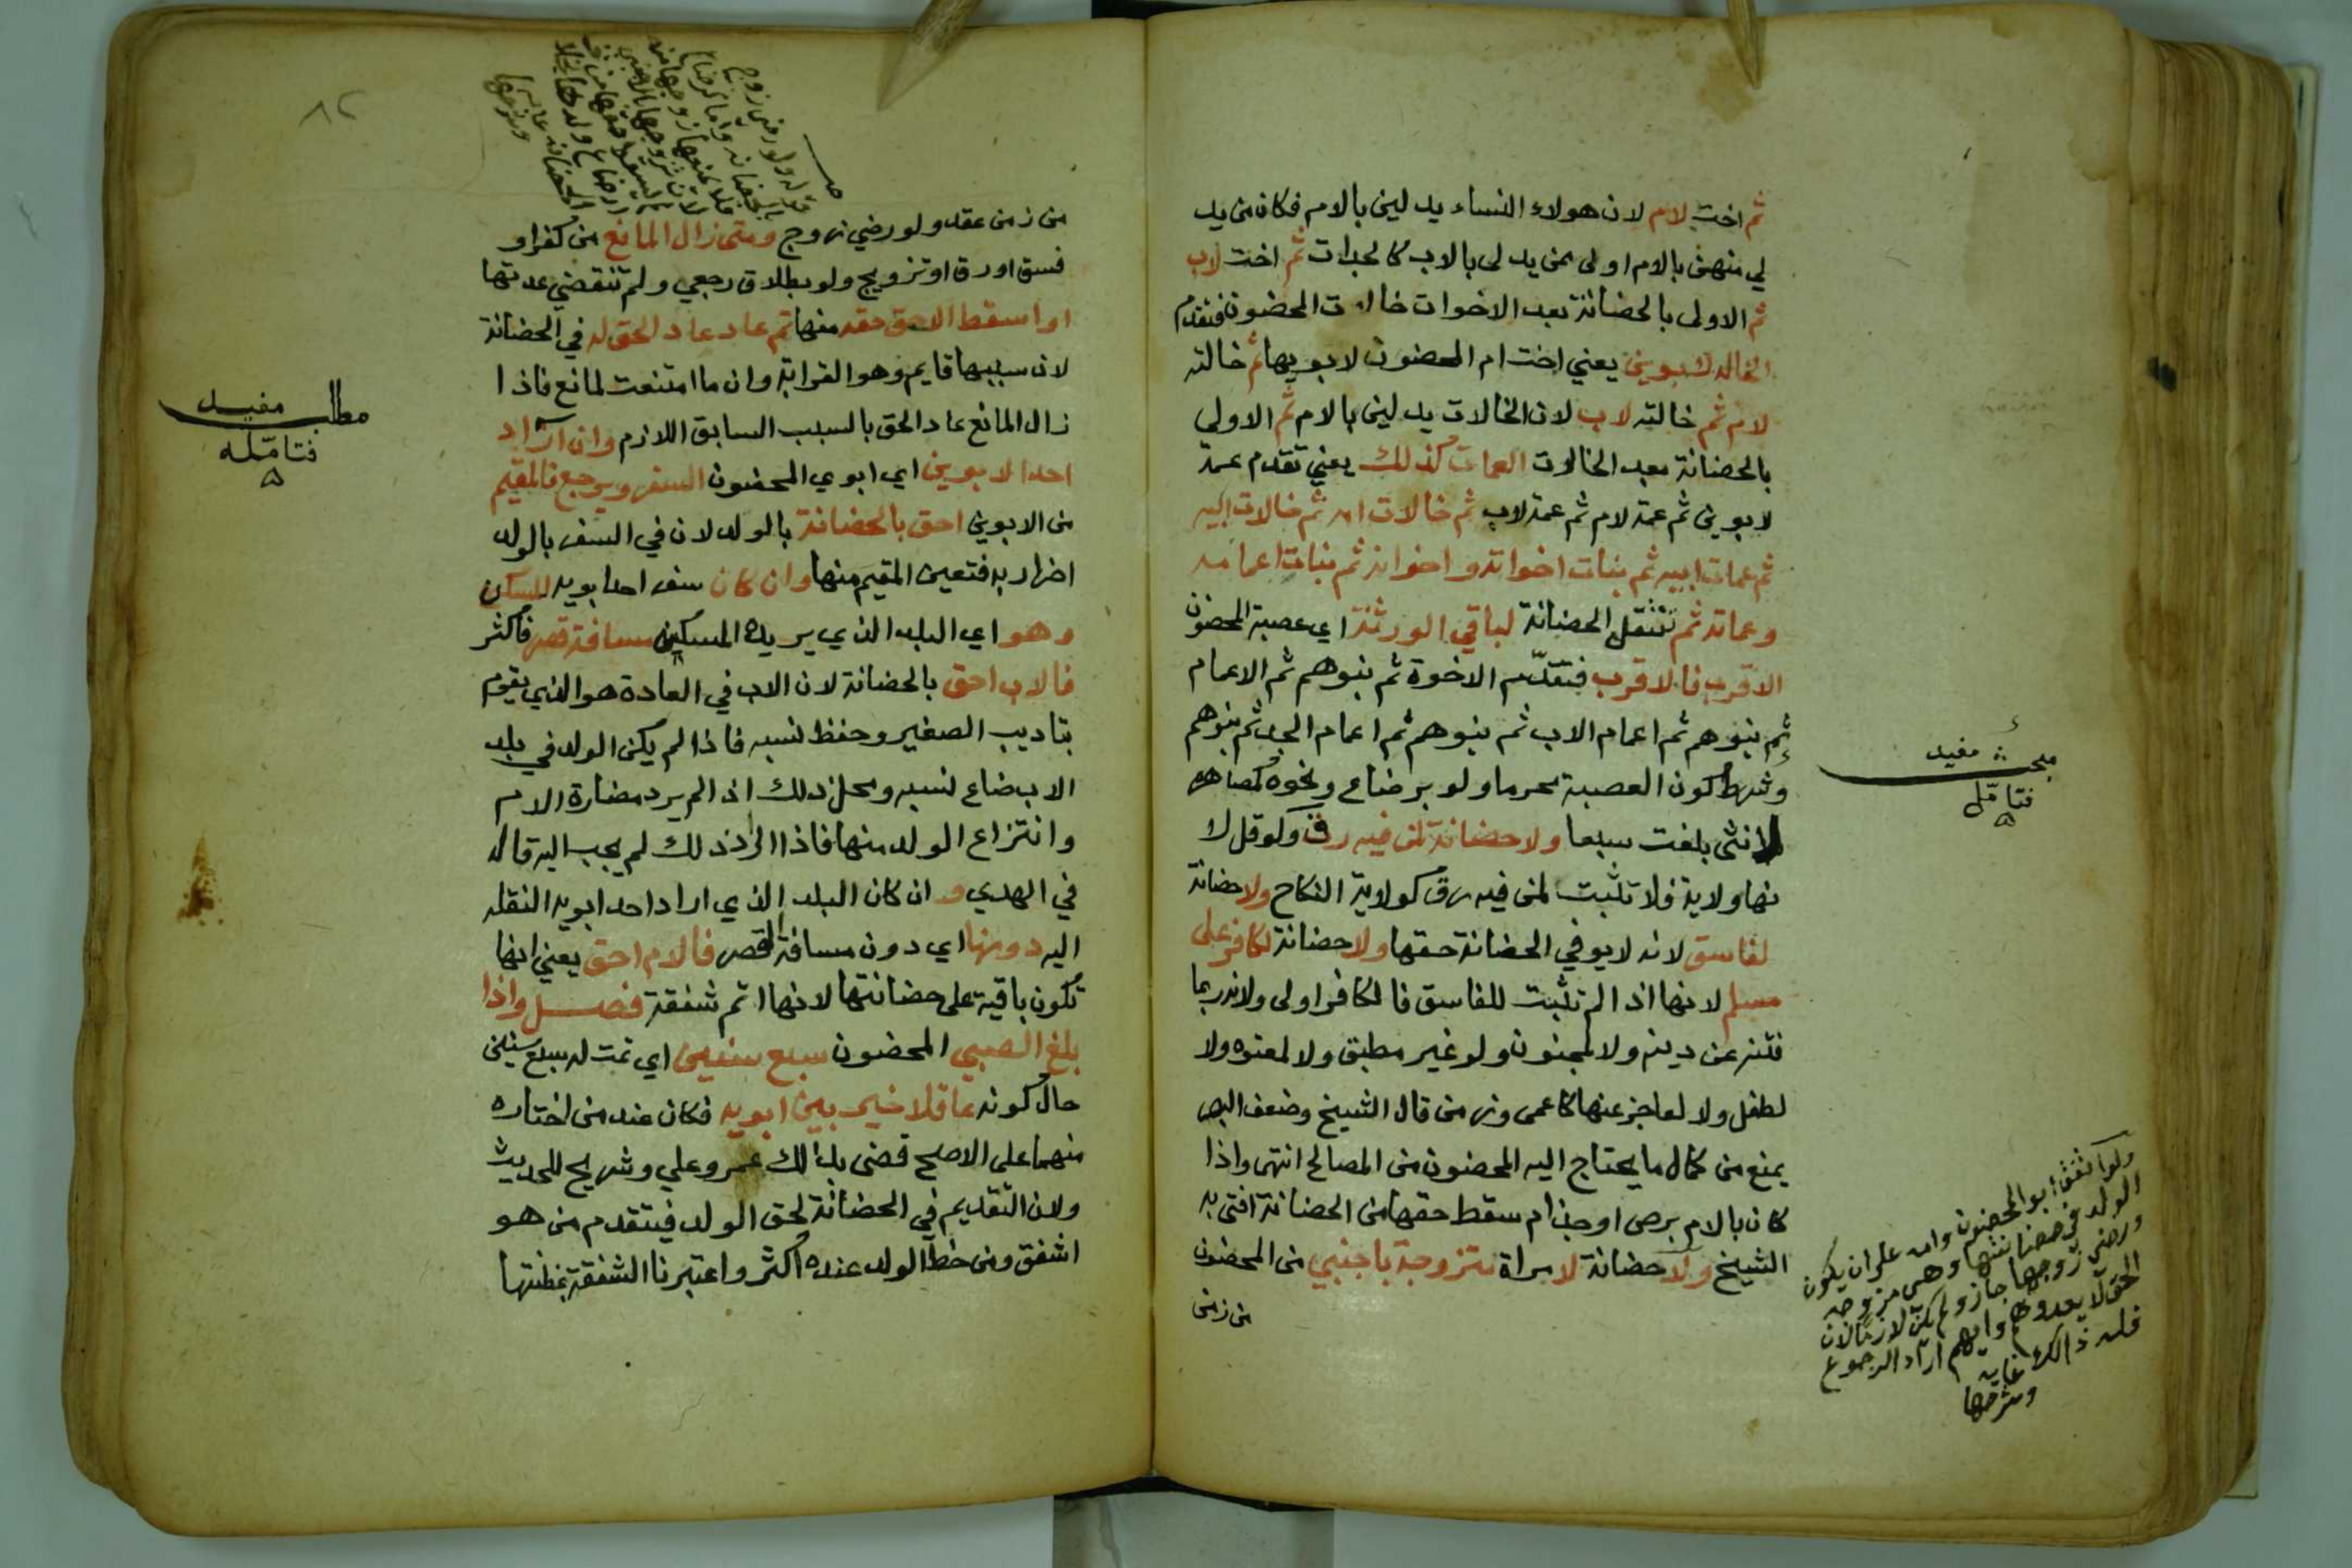 ثم اخت لام لان هولاء النساء يدلين بالام فكان من يد
لي منهن بالام اولى ممن يدلى بالاب كالجدات ثم اخت لاب
ثم الاولى بالحضانة بعد الاخوات خالات المحضون فتقدم
الخالة لابوين يعني اخت ام المحضون لابويها ثم خالته
لام ثم خالته لاب لان الخالات يدلين بالام ثم الاولي
بالحضانة بعد الخالات العمات كذلك يعني تقدم عمة
لابوين ثم عمة لام ثم عمة لاب ثم خالات امه ثم خالات ابيه
ثم عمات ابيه ثم بنات اخواته واخوانه ثم بنات اعمامه
وعماته ثم تنتقل الحضانة لباقي الورثة اي عصبة المحضون
الاقرب فالاقرب فتقدّم الاخوة ثم بنوهم ثم الاعمام
ثم بنوهم ثم اعمام الاب ثم بنوهم ثم اعمام الجد ثم بنوهم
وشرط كون العصبة محرما ولو برضاع ونحوه كمصاهرة
لانثى بلغت سبعا ولا حضانة لمن فيه رق ولو قل لا
نها ولاية فلا تثبت لمن فيه رق كولاية النكاح ولا حضانة
لفاسق لانه لا يوفي الحضانة حقها ولا حضانة لكافر على
مسلم لانها اذا لم تثبت للفاسق فالكافر اولى ولانه ربما
فتنه عن دينه ولا لمجنون ولو غير مطبق ولا لمعتوه ولا
لطفل ولا لعاجز عنها كاعمى وزمن قال الشيخ وضعف البصر
يمنع من كمال ما يحتاج اليه المحضون من المصالح انتهى واذا
كان بالام برص او جذام سقط حقها من الحضانة افتى به
الشيخ ولا حضانة لامراة تتزوجة باجنبي من المحضون
من زمن
مبحث مفيد
فتامّل
ولو اتفق ابو المحضون وامه على ان يكون
الولد في حضانتها وهي مزوجه
ورضي زوجها جاز ولم يكن لازما لان
الحق لا يعدوهم وايهم اراد الرجوع
فله ذالك غايه
وشرحها
من زمن عقد ولو رضي زوج ومتى زال المانع من كفر او
فسق او رق او تزويج ولو بطلاق رجعي ولم تنقضي عدتها
او اسقط الاحق حقه منها ثم عاد عاد الحق له في الحضانة
لان سببها قايم وهو القرابة وان ما امتنعت لمانع فاذا
زال المانع عاد الحق بالسبب السابق اللازم وان اراد
احد الابوين اي ابوي المحضون السفر ويرجع فالمقيم
من الابوين احق بالحضانة بالولد لان في السفر بالولد
اضرار به فتعين المقيم منها وان كان سفر احد ابويه للسكن
وهو اي البلد الذي يريد المسكين مسافة قصر فاكثر
فالاب احق بالحضانة لان الاب في العادة هو الذي يقوم
بتاديب الصغير وحفظ نسبه فاذا لم يكن الولد في بلد
الاب ضاع نسبه ومحل ذلك اذا لم يرد مضارة الام
وانتزاع الولد منها فاذا اراد ذلك لم يجب اليه قاله
في الهدي وان كان البلد الذي اراد احد ابويه النقله
اليه دونها اي دون مسافة القصر فالام احق يعني انها
تكون باقية على حضانتها لانها اتم شفقة فصل واذا
بلغ الصبي المحضون سبع سنين اي تمت له سبع سنين
حال كونه عاقلا خير بين ابويه فكان عند من اختاره
منهما على الاصح قضى بذالك عمر وعلي وشريح للحديث
ولان التقديم في الحضانة لحق الولد فيتقدم من هو
اشفق ومن حظ الولد عنده اكثر واعتبرنا الشفقة بمظنتها
مطلب مفيد
فتامّله
قوله ولو رضي زوج
٨٢